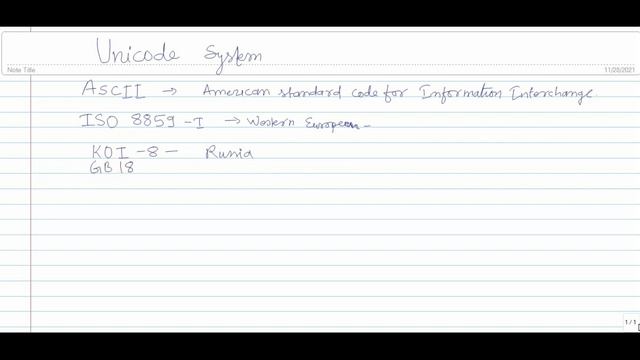 Unicode System
Note Title
11/28/2021
ASCII → American standard code for Information Interchange.
ISO 8859-1 → Western European-
KOI-8 - Russia
GB18
1/1